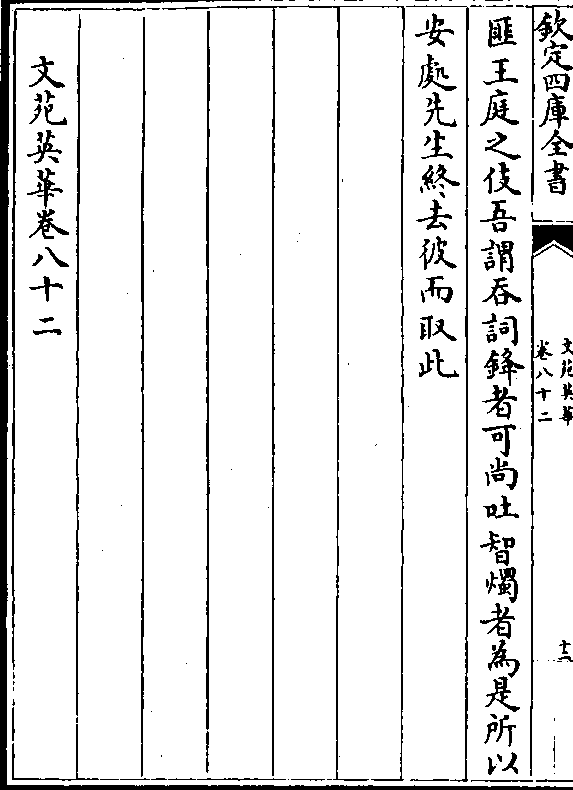 欽定四庫全書
文苑英華
卷八十二
十二
匪王庭之伎吾謂吞詞鋒者可尚吐智燭者為是所以
安處先生終去彼而取此
文苑英華卷八十二